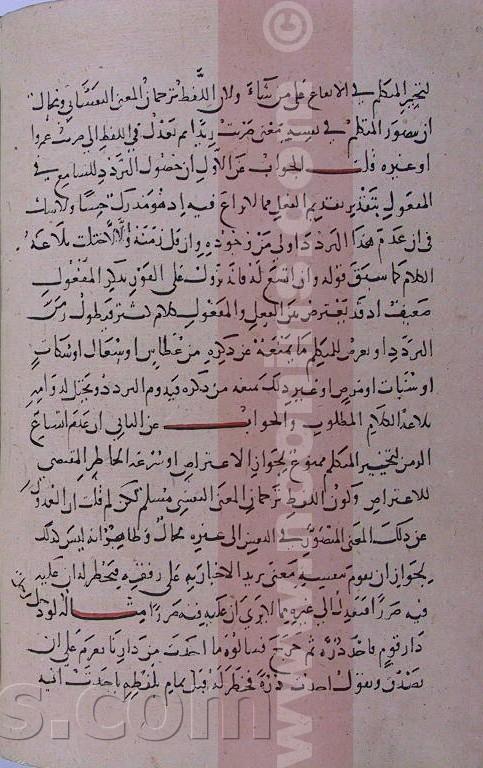 لتخيير المتكلم في الايقاع على من شاء ولان اللفظ ترجمان المعنى النفساني ومحال
ان يتصور المتكلم في نفسه معنى ضربت زيدا ثم يعدل في اللفظ الى ضربت عمروا
او غيره قلت الجواب عن الاول ان حصول التردد للسامع في
المفعول بتقدير تقديم الفعل مما لا نزاع فيه اذ هو مدرك حسا ولا شك
في ان عدم هذا التردد اولى من وجوده وان قل زمنه ولا اختلت بلاغة
الكلام كما سبق قوله وان اتفق له فانه يزول على الفور بذكر المفعول
ضعيف اذ قد يعترض بين الفعل والمفعول كلام كثير فيطول زمن
التردد او يعرض للمتكلم ما يمنعه من ذكره من عطاس او سعال او سكات
او سبات او مرض او غير ذلك يمنعه من ذكره فيدوم التردد ويختل لدوامه
بلاغة الكلام المطلوب والجواب عن الثاني ان عدم اتساع
الزمن لتخيير المتكلم ممنوع لجواز الاعتراض او سرعة الخاطر المقتضي
للاعتراض وكون اللفظ ترجمان المعنى النفسي مسلم لكن لم قلت ان العدول
عن ذلك المعنى المتصور في النفس الى غيره محال وظاهر انه ليس كذلك
لجواز ان يقوم بنفسه معنى يريد الاخبار به على وفقه فيخطر له ان عليه
فيه ضررا فيعدل الى غيره مما لا يرى ان عليه فيه ضررا مثاله لو دخل
دار قوم فاخذ درة ثم خرج فسالوه ما اخذت من دارنا فعزم على ان
يصدق ويقول اخذت درة فخطر له قبل تمام لفظه باخذت انه